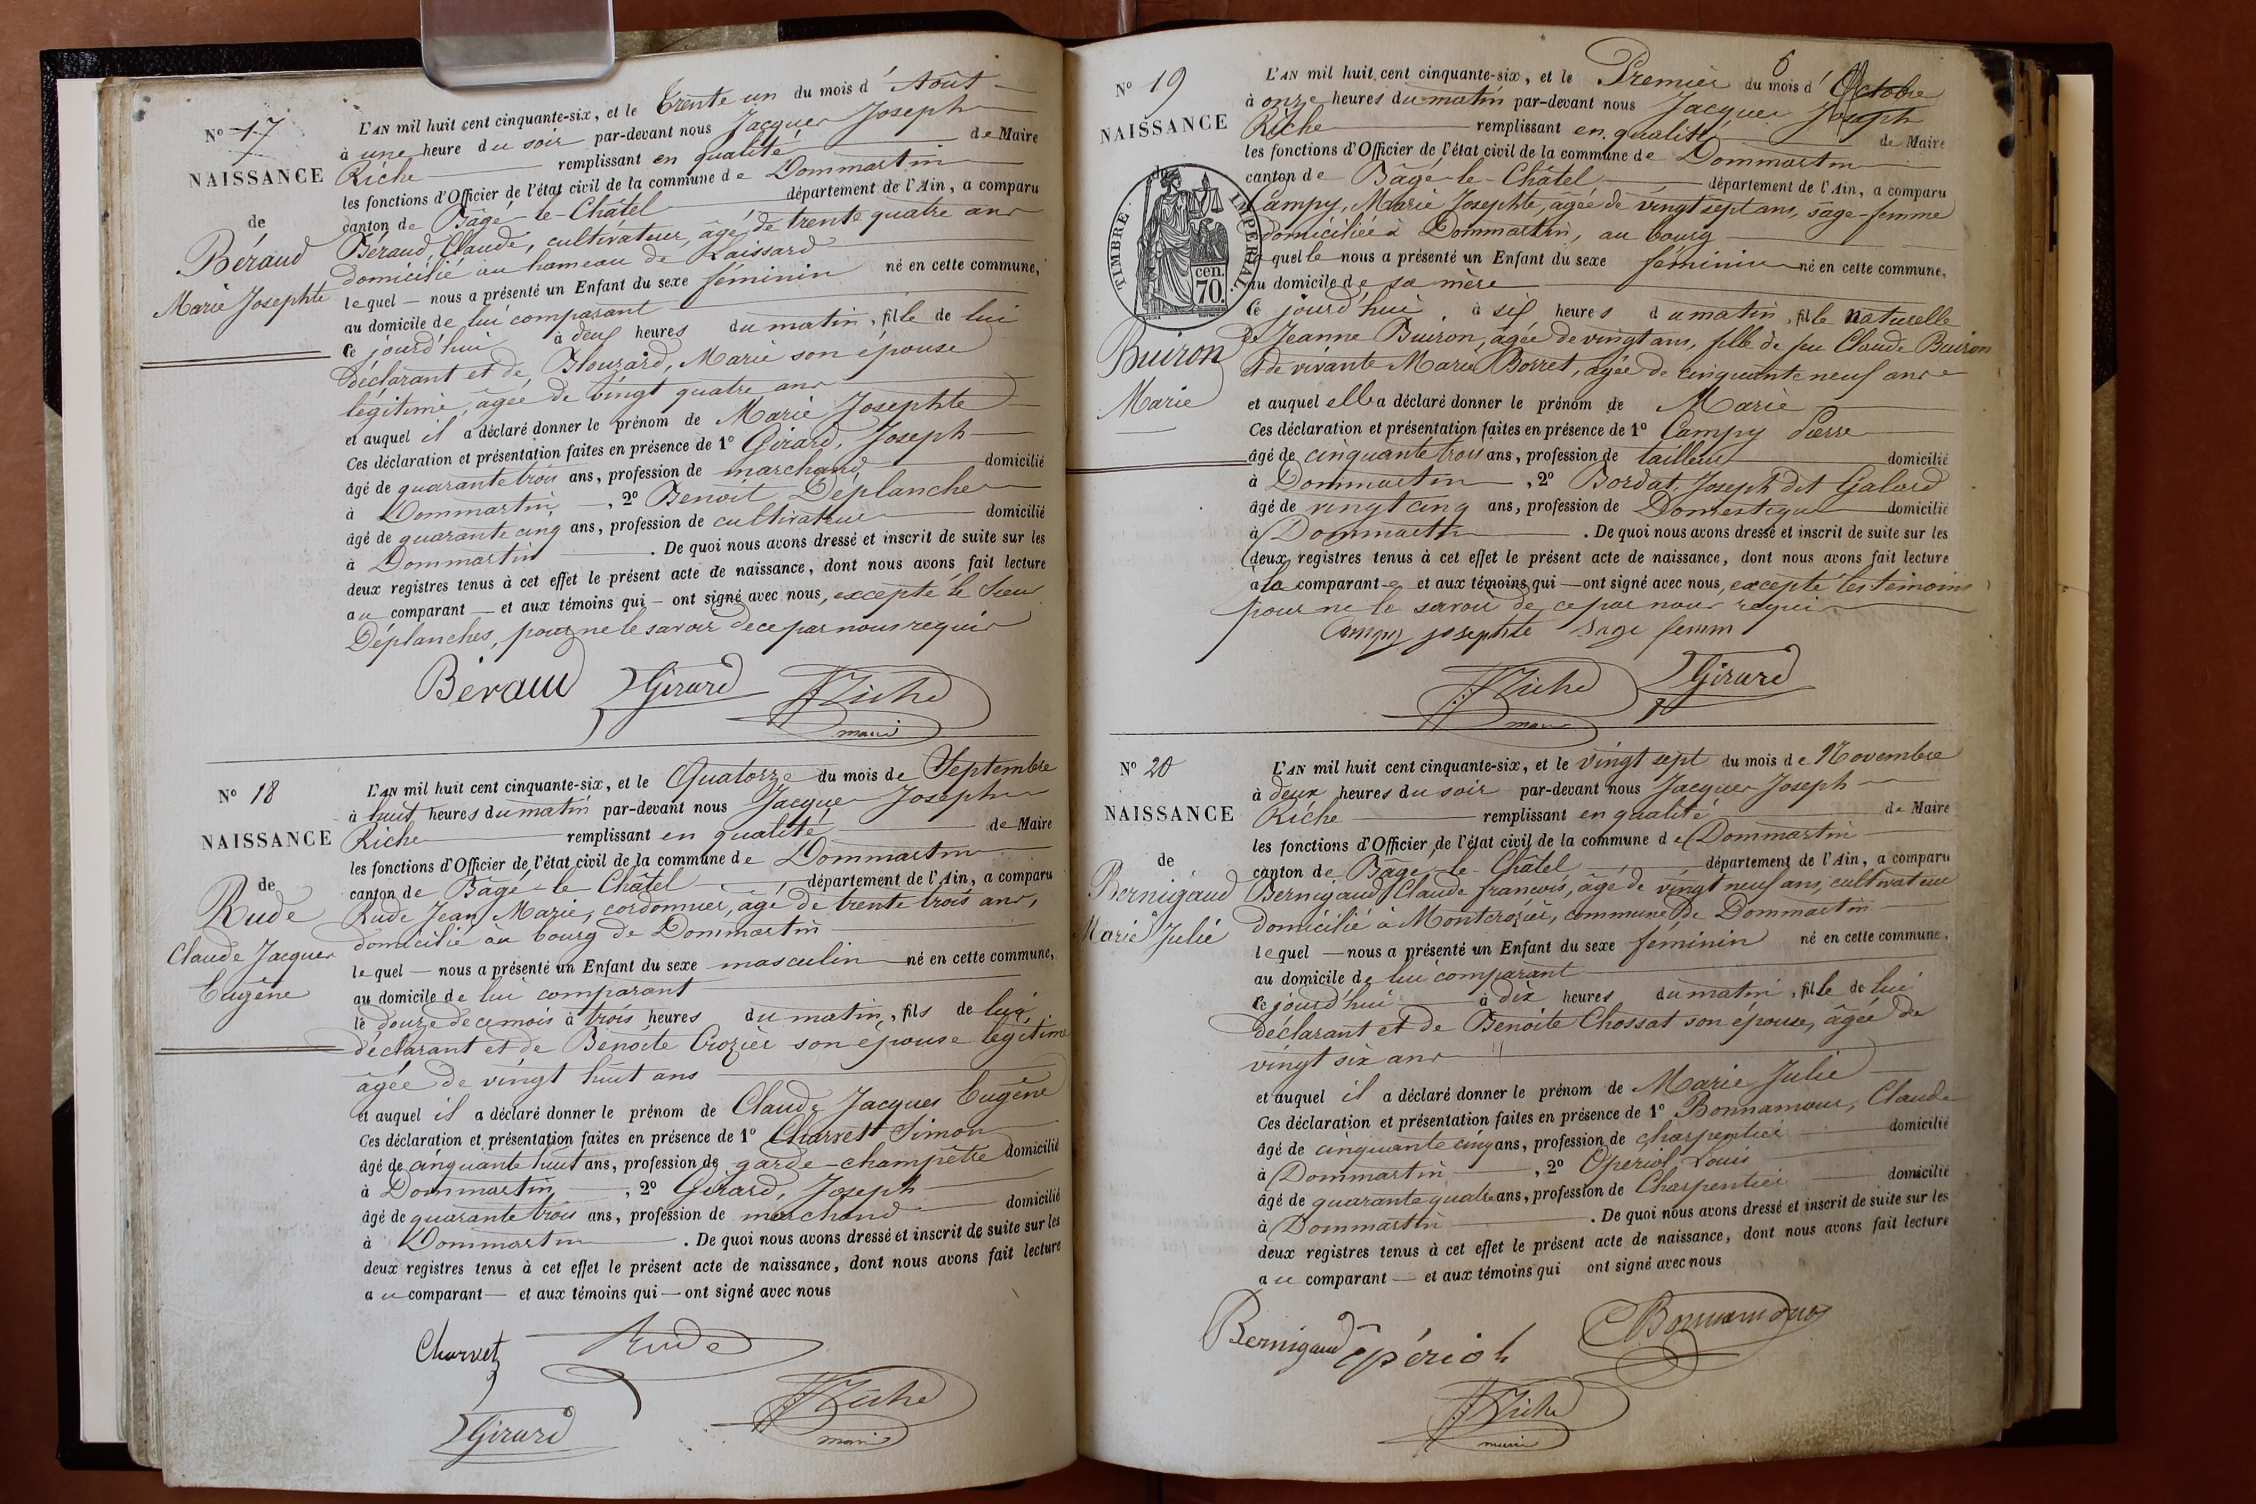 N° 17
NAISSANCE
de
Béraud
Marie Josephte
L'AN mil huit cent cinquante-six, et le trente un du mois d'Août
à une heure du soir par-devant nous Jacques Joseph
Riche remplissant en qualité de Maire
les fonctions d'Officier de l'état civil de la commune de Dommartin
canton de Bâgé-le-Châtel département de l'Ain, a comparu
Béraud, Claude, cultivateur, âgé de trente quatre ans
domicilié au hameau de Laissard
lequel nous a présenté un Enfant du sexe féminin né en cette commune,
au domicile de lui comparant
ce jourd'hui à deux heures du matin, fille de lui
déclarant et de Blouzard, Marie son épouse
légitime, âgée de vingt quatre ans
et auquel il a déclaré donner le prénom de Marie Josephte
Ces déclaration et présentation faites en présence de 1° Girard, Joseph
âgé de quarante trois ans, profession de marchand domicilié
à Dommartin, 2° Benoit Déplanche
âgé de quarante cinq ans, profession de cultivateur domicilié
à Dommartin. De quoi nous avons dressé et inscrit de suite sur les
deux registres tenus à cet effet le présent acte de naissance, dont nous avons fait lecture
au comparant et aux témoins qui ont signé avec nous, excepté le Sieur
Déplanches, pour ne le savoir de ce par nous requis
Beraud Girard JRiche
maire
N° 18
NAISSANCE
de
Rude
Claude Jacques
Eugêne
L'AN mil huit cent cinquante-six, et le Quatorze du mois de Septembre
à huit heures du matin par-devant nous Jacques Joseph
Riche remplissant en qualité de Maire
les fonctions d'Officier de l'état civil de la commune de Dommartin
canton de Bâgé-le-Châtel département de l'Ain, a comparu
Rude Jean Marie, cordonnier, âgé de trente trois ans,
domicilié au bourg de Dommartin
lequel nous a présenté un Enfant du sexe masculin né en cette commune,
au domicile de lui comparant
le douze de ce mois à trois heures du matin, fils de lui,
déclarant et de Benoite Crozier son épouse légitime
âgée de vingt huit ans
et auquel il a déclaré donner le prénom de Claude Jacques Eugêne
Ces déclaration et présentation faites en présence de 1° Charvet Simon
âgé de cinquante huit ans, profession de garde-champêtre domicilié
à Dommartin, 2° Girard, Joseph
âgé de quarante trois ans, profession de marchand domicilié
à Dommartin. De quoi nous avons dressé et inscrit de suite sur les
deux registres tenus à cet effet le présent acte de naissance, dont nous avons fait lecture
au comparant et aux témoins qui ont signé avec nous
Charvet Rude
Girard JRiche
maire
6
N° 19
NAISSANCE
de
TIMBRE IMPERIAL
70 cen.
Buiron
Marie
L'AN mil huit cent cinquante-six, et le Premier du mois d'Octobre
à onze heures du matin par-devant nous Jacques Joseph
Riche remplissant en qualité de Maire
les fonctions d'Officier de l'état civil de la commune de Dommartin
canton de Bâgé-le-Châtel département de l'Ain, a comparu
Campy, Marie Josephte, âgée de vingt sept ans, sage-femme
domiciliée à Dommartin, au bourg
quelle nous a présenté un Enfant du sexe féminin né en cette commune,
au domicile de sa mère
ce jourd'hui à six heures du matin, fille naturelle
de Jeanne Buiron, âgée de vingt ans, fille de feu Claude Buiron
et de vivante Marie Borret, âgée de cinquante neuf ans
et auquel elle a déclaré donner le prénom de Marie
Ces déclaration et présentation faites en présence de 1° Campy Pierre
âgé de cinquante trois ans, profession de tailleur domicilié
à Dommartin, 2° Bordat, Joseph dit Galard
âgé de vingt cinq ans, profession de Domestique domicilié
à Dommartin. De quoi nous avons dressé et inscrit de suite sur les
deux registres tenus à cet effet le présent acte de naissance, dont nous avons fait lecture
à la comparante et aux témoins qui ont signé avec nous, excepté les témoins
pour ne le savoir de ce par nous requis
Campy josephte sage femm
JRiche Girard
maire
N° 20
NAISSANCE
de
Bernigaud
Marie Julie
L'AN mil huit cent cinquante-six, et le vingt sept du mois de Novembre
à deux heures du soir par-devant nous Jacques Joseph
Riche remplissant en qualité de Maire
les fonctions d'Officier de l'état civil de la commune de Dommartin
canton de Bâgé-le-Châtel département de l'Ain, a comparu
Bernigaud Claude françois, âgé de vingt neuf ans, cultivateur
domicilié à Montcrozier, commune de Dommartin
lequel nous a présenté un Enfant du sexe féminin né en cette commune,
au domicile de lui comparant
ce jourd'hui à dix heures du matin, fille de lui
déclarant et de Benoite Chossat son épouse, âgée de
vingt six ans
et auquel il a déclaré donner le prénom de Marie Julie
Ces déclaration et présentation faites en présence de 1° Bonnamour, Claude
âgé de cinquante cinq ans, profession de charpentier domicilié
à Dommartin, 2° Opériol Louis
âgé de quarante quatre ans, profession de Charpentier domicilié
à Dommartin. De quoi nous avons dressé et inscrit de suite sur les
deux registres tenus à cet effet le présent acte de naissance, dont nous avons fait lecture
au comparant et aux témoins qui ont signé avec nous
Bernigaud Opériol CBonnamour
JRiche
maire